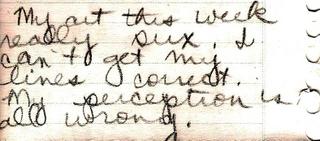 My art this week
really sux. I
can't get my
lines correct.
My perception is
all wrong.